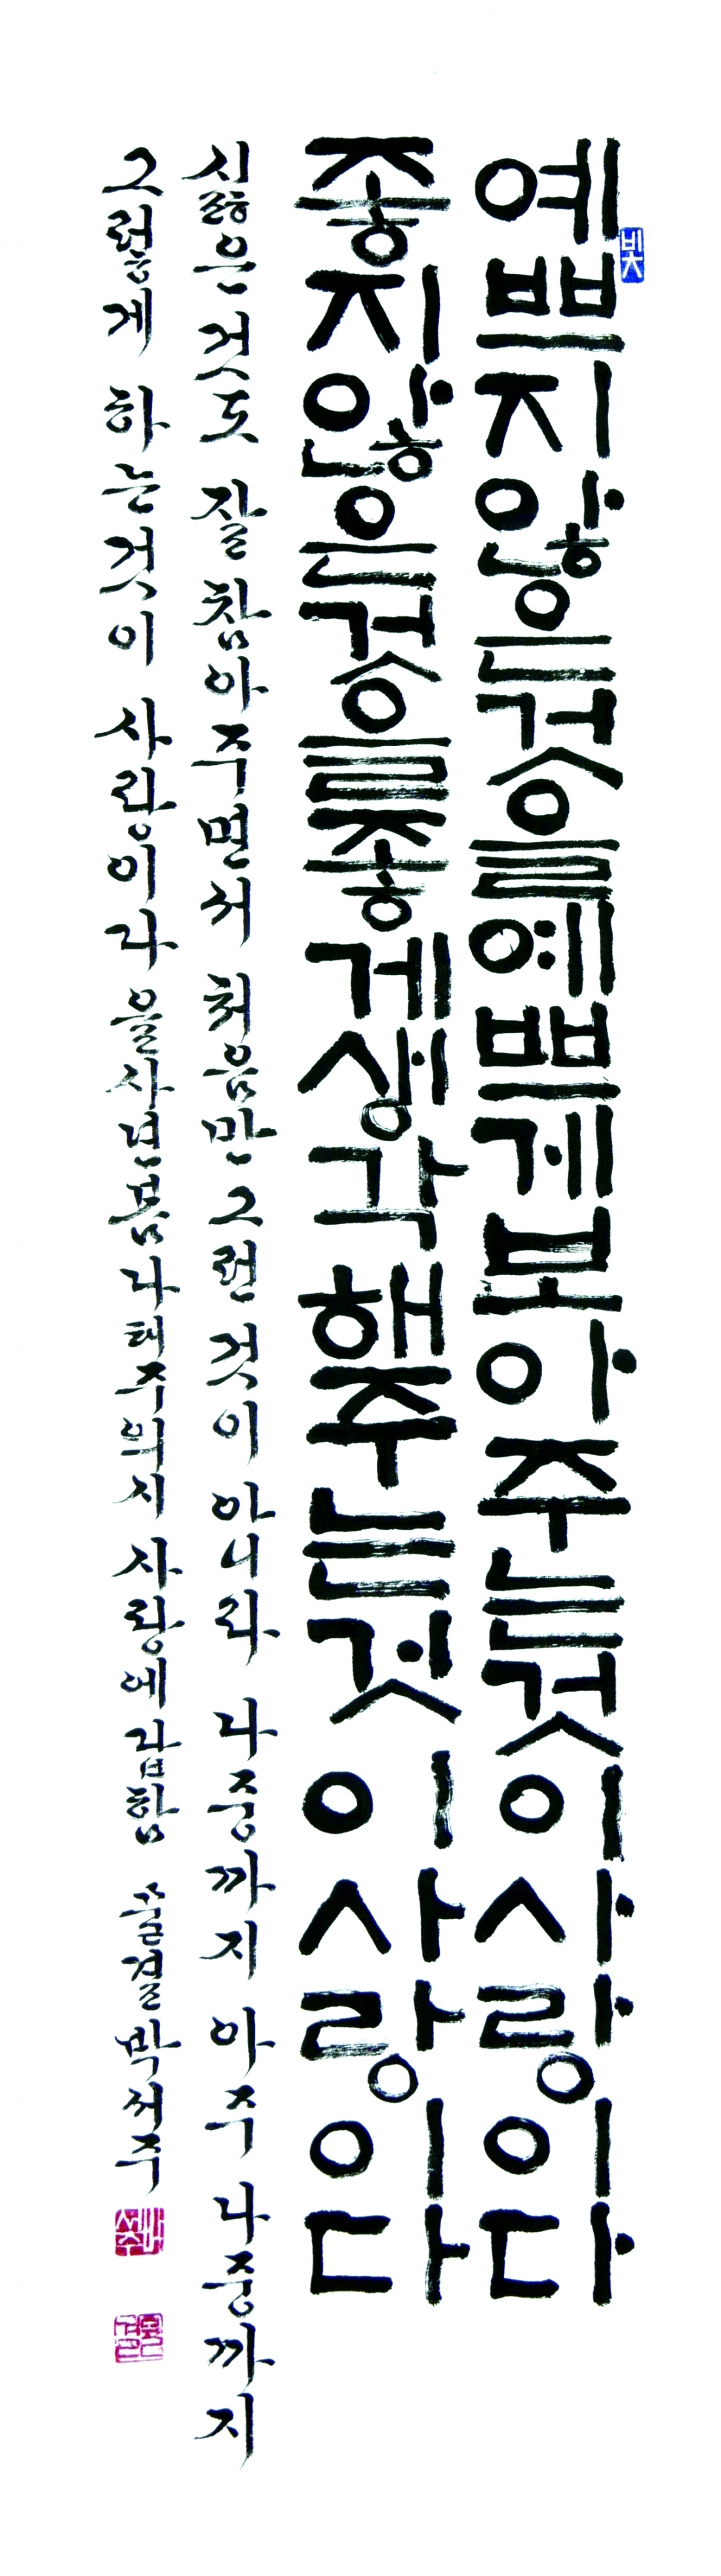 예쁘지않은것을예쁘게보아주는것이사랑이다
빛
좋지않은것을좋게생각해주는것이사랑이다
싫은 것도 잘 참아주면서 처음만 그런 것이 아니라 나중까지 아주 나중까지
그렇게 하는것이 사랑이다 을사년봄 나태주의시 사랑에답함 물결 박서주
박서주
물결